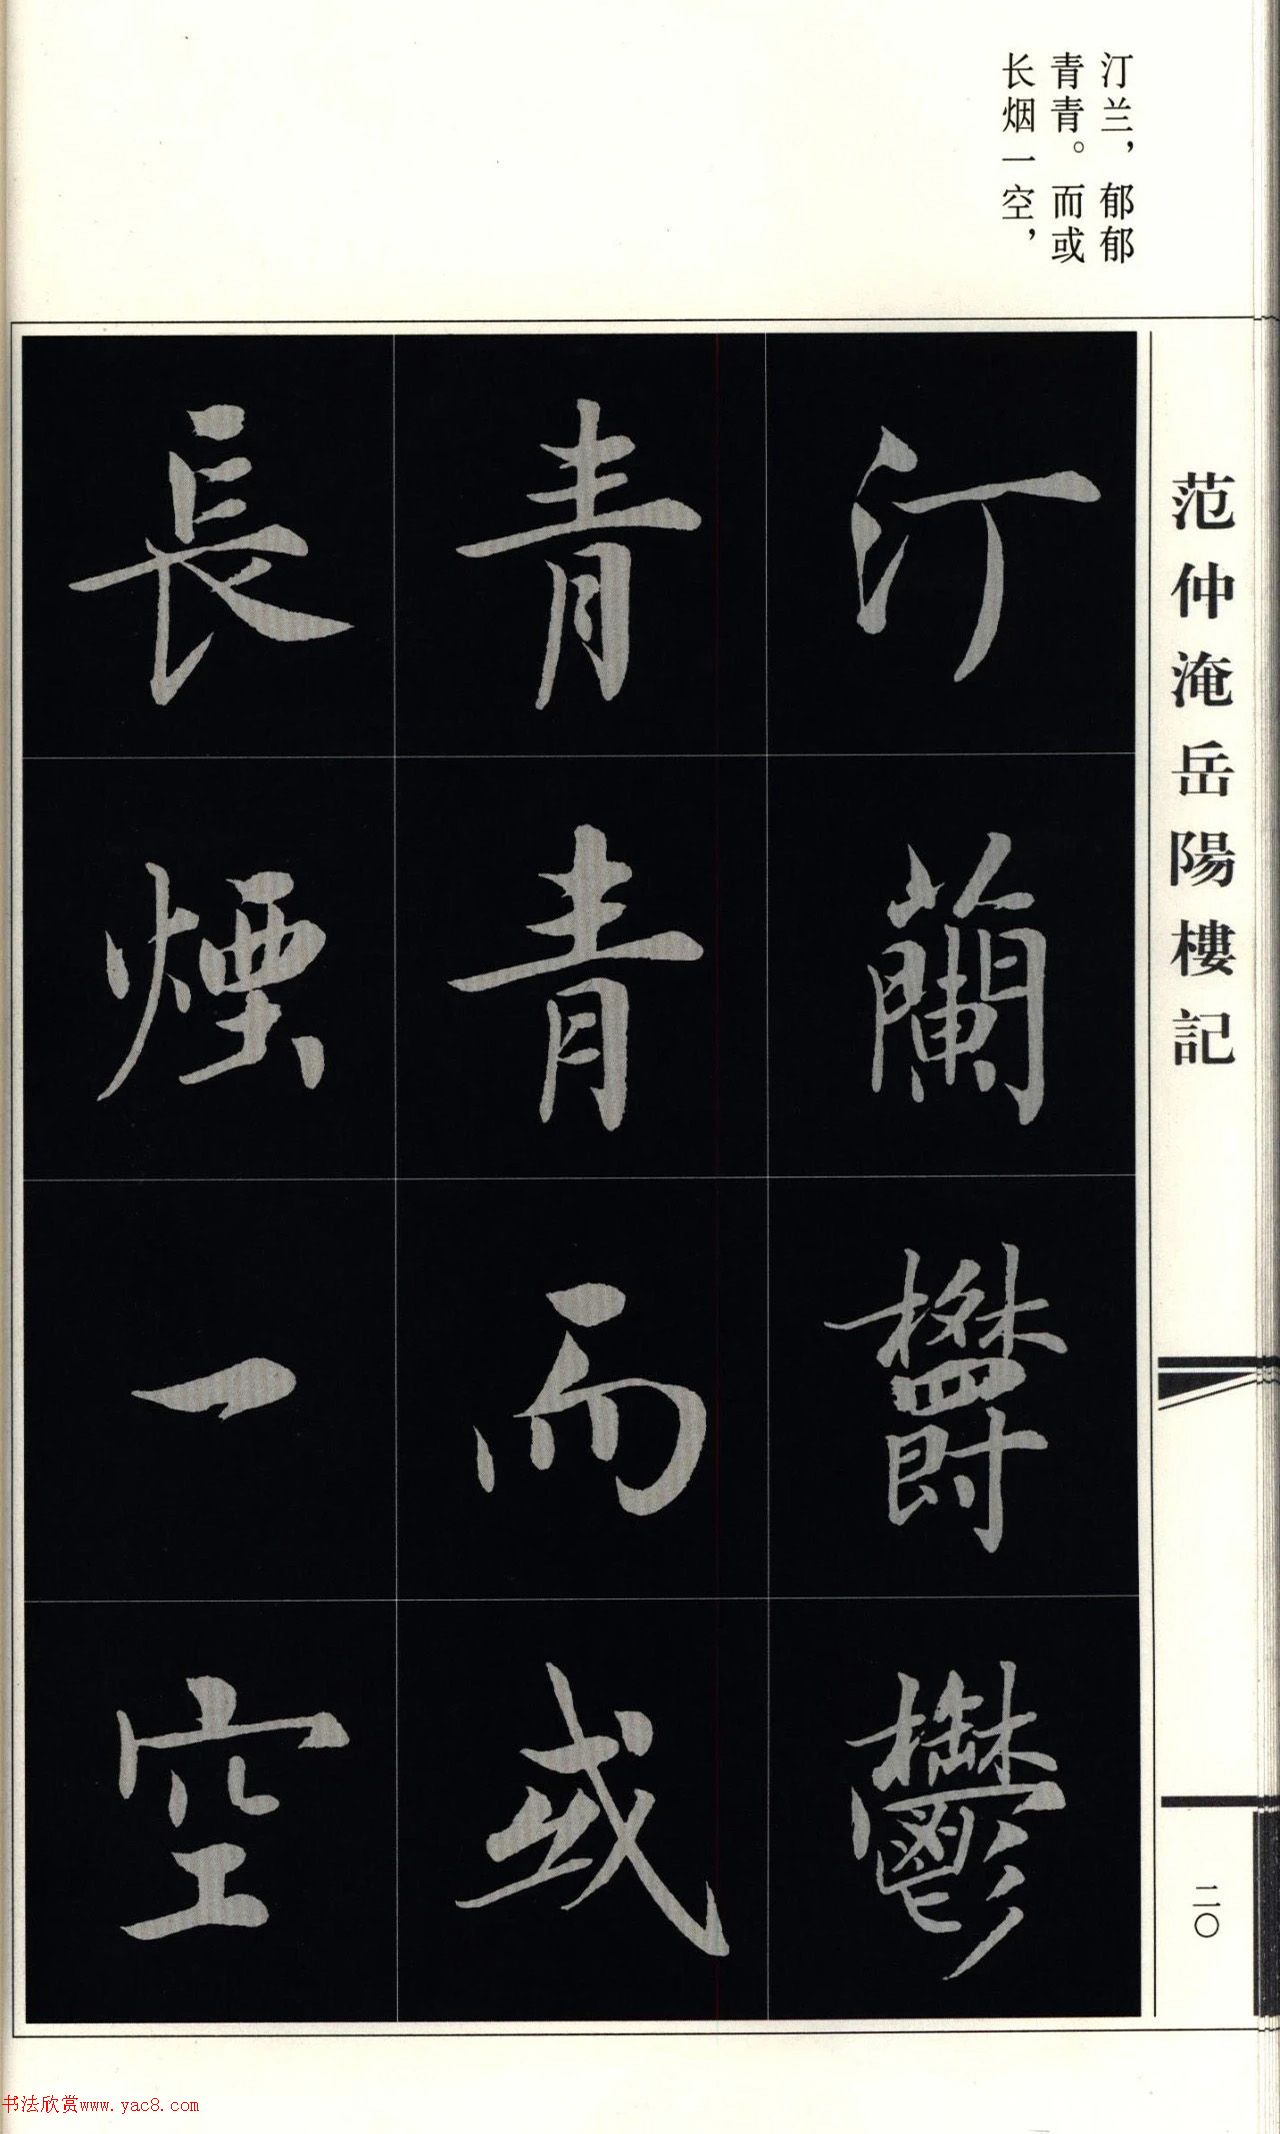 汀兰，郁郁
青青。而或
长烟一空，
范仲淹岳陽樓記
汀蘭欝鬱
青青而或
長煙一空
二〇
书法欣赏www.yac8.com